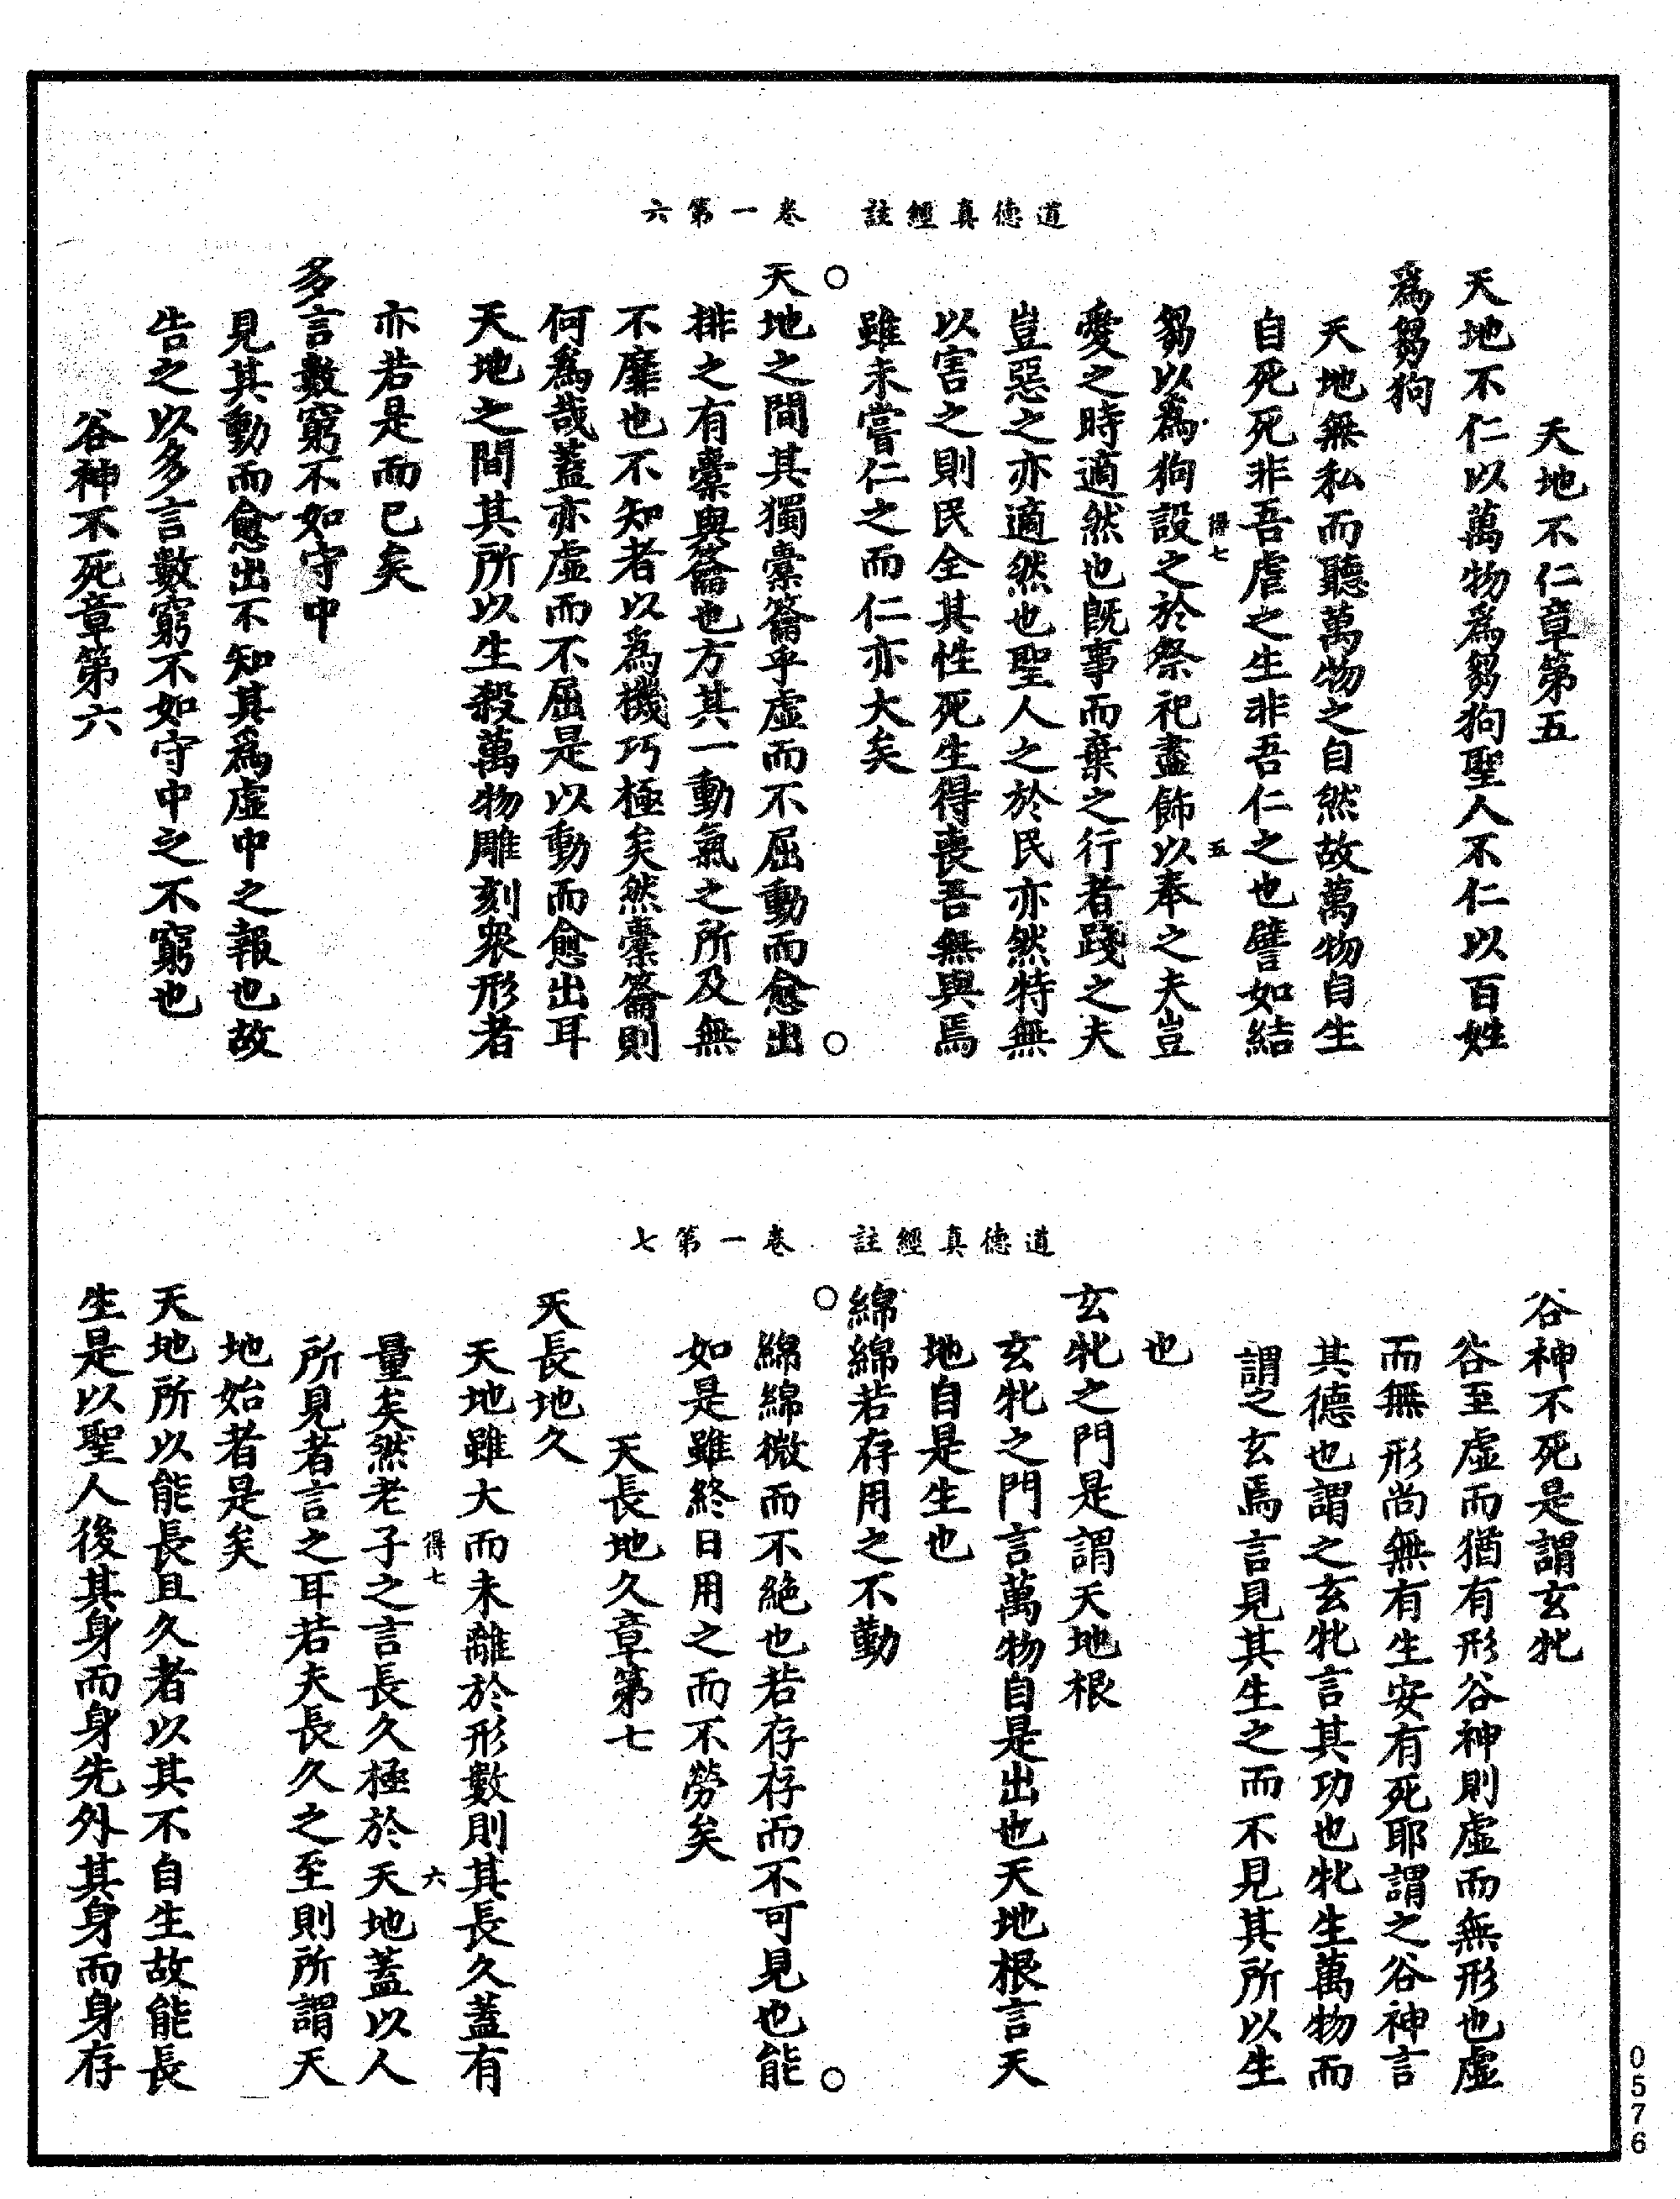 道德真經註　卷一第六
天地不仁章第五
天地不仁以萬物爲芻狗聖人不仁以百姓
爲芻狗
天地無私而聽萬物之自然故萬物自生
自死死非吾虐之生非吾仁之也譬如結
得七　五
芻以爲狗設之於祭祀盡飾以奉之夫豈
愛之時適然也既事而棄之行者踐之夫
豈惡之亦適然也聖人之於民亦然特無
以害之則民全其性死生得喪吾無與焉
雖未嘗仁之而仁亦大矣
天地之間其獨橐籥乎虛而不屈動而愈出
排之有橐與籥也方其一動氣之所及無
不靡也不知者以爲機巧極矣然橐籥則
何爲哉蓋亦虛而不屈是以動而愈出耳
天地之間其所以生殺萬物雕刻衆形者
亦若是而已矣
多言數窮不如守中
見其動而愈出不知其爲虛中之報也故
告之以多言數窮不如守中之不窮也
谷神不死章第六
道德真經註　卷一第七
谷神不死是謂玄牝
谷至虛而猶有形谷神則虛而無形也虛
而無形尚無有生安有死耶謂之谷神言
其德也謂之玄牝言其功也牝生萬物而
謂之玄焉言見其生之而不見其所以生
也
玄牝之門是謂天地根
玄牝之門言萬物自是出也天地根言天
地自是生也
綿綿若存用之不勤
綿綿微而不絶也若存存而不可見也能
如是雖終日用之而不勞矣
天長地久章第七
天長地久
天地雖大而未離於形數則其長久蓋有
得七　六
量矣然老子之言長久極於天地蓋以人
所見者言之耳若夫長久之至則所謂天
地始者是矣
天地所以能長且久者以其不自生故能長
生是以聖人後其身而身先外其身而身存
0576